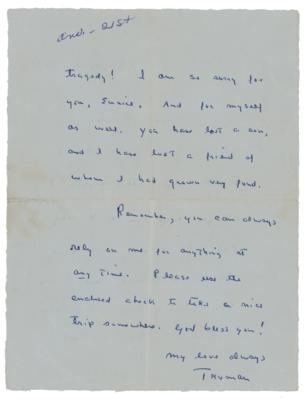 - 21st
tragedy! I am so sorry for
you, Eunice. And for myself
as well. You have lost a son,
and I have lost a friend of
whom I had grown very fond.
Remember, you can always
rely on me for anything at
any time. Please use the
enclosed check to take a nice
trip somewhere. God bless you!
My love always
Truman